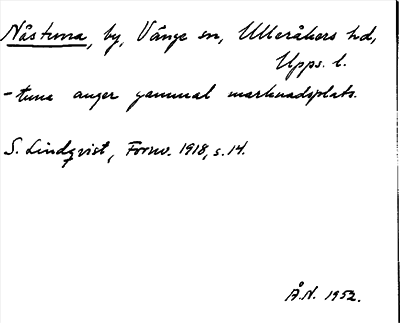 Nåstuna, by, Vänge sn, Ulleråkers hd,
Upps. l.
-tuna anger gammal marknadsplats.
S. Lindqvist, Fornv. 1918, s. 14.
Å.N. 1952.